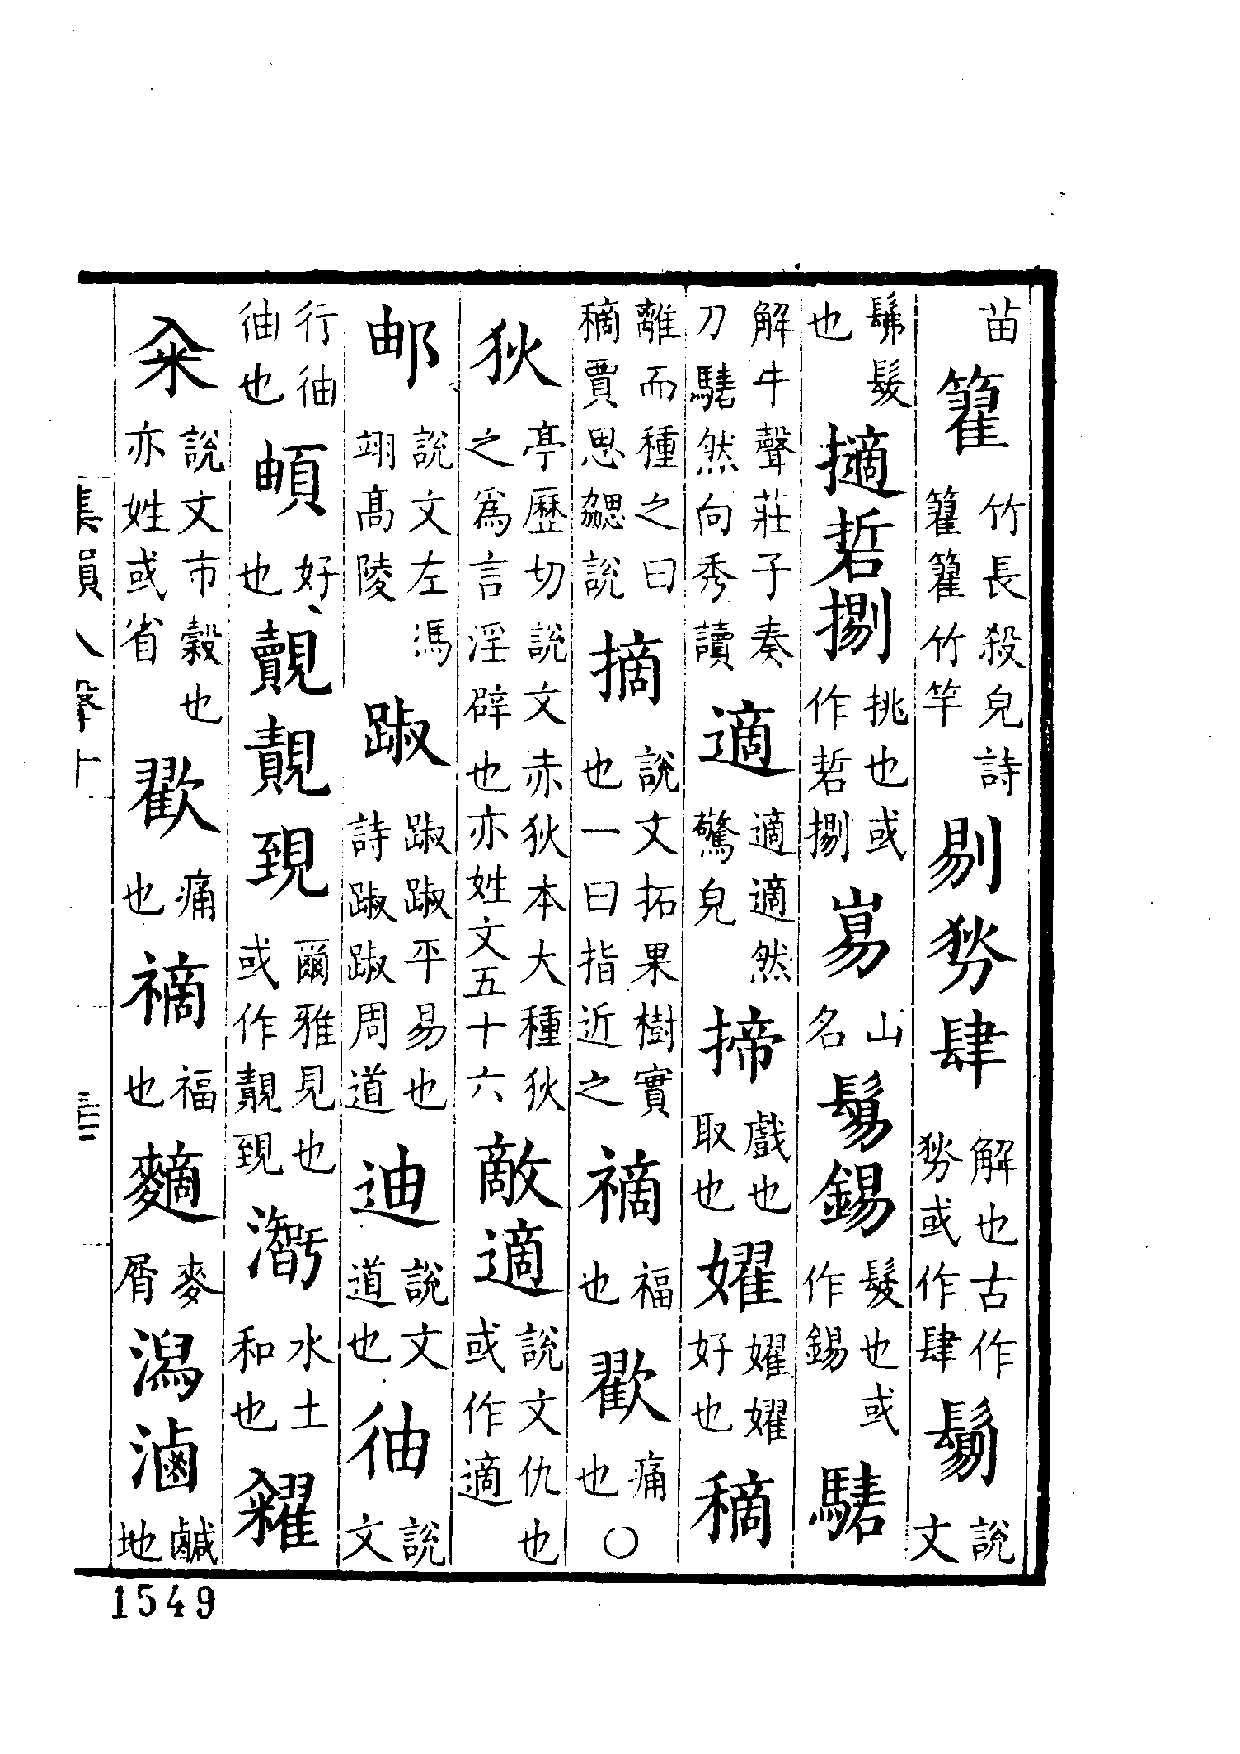 苗籊竹長殺皃詩籊籊竹竿剔𠢕肆解也古作𠢕或作肆鬄說文
鬄髮也擿硩摥挑也或作硩摥崵山名鬄鍚髮也或作鍚騞
解牛聲莊子奏刀騞然向秀讀適適適然驚皃揥戲也取也嬥嬥嬥好也䅥
離而種之曰䅥賈思勰說摘說文拓果樹實也一曰指近之禘福也歠痛也〇
狄亭歷切說文赤狄本大種狄之爲言淫辟也亦姓文五十六敵適說文仇也或作適
邮說文左馮翊高陵踧踧踧平易也詩踧踧周道迪說文道也㣙說文
行㣙㣙也頔好也覿覿現爾雅見也或作覿現水土和也糴
籴說文市穀也亦姓或省歠痛也福也麥屑潟滷鹹地
集韻入聲十
1549